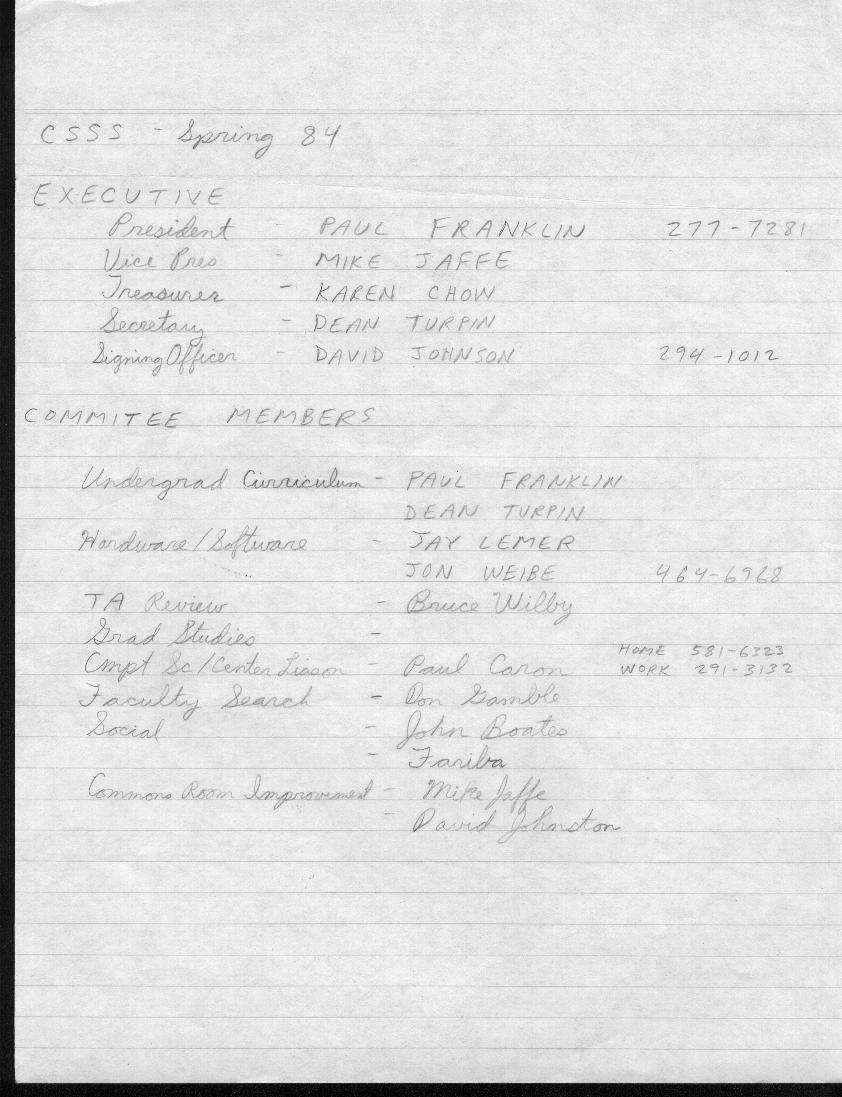 CSSS - Spring 84
EXECUTIVE
President - PAUL FRANKLIN 277-7281
Vice Pres - MIKE JAFFE
Treasurer - KAREN CHOW
Secretary - DEAN TURPIN
Signing Officer - DAVID JOHNSON 294-1012
COMMITEE MEMBERS
Undergrad Curriculum - PAUL FRANKLIN
DEAN TURPIN
Hardware/Software - JAY LEMER
JON WEIBE 464-6968
TA Review - Bruce Wilby
Grad Studies -
HOME 581-6323
Cmpt Sc/Center Liason - Paul Caron WORK 291-3132
Faculty Search - Don Gamble
Social - John Boates
- Fariba
Commons Room Improvement - Mike Jaffe
- David Johnston